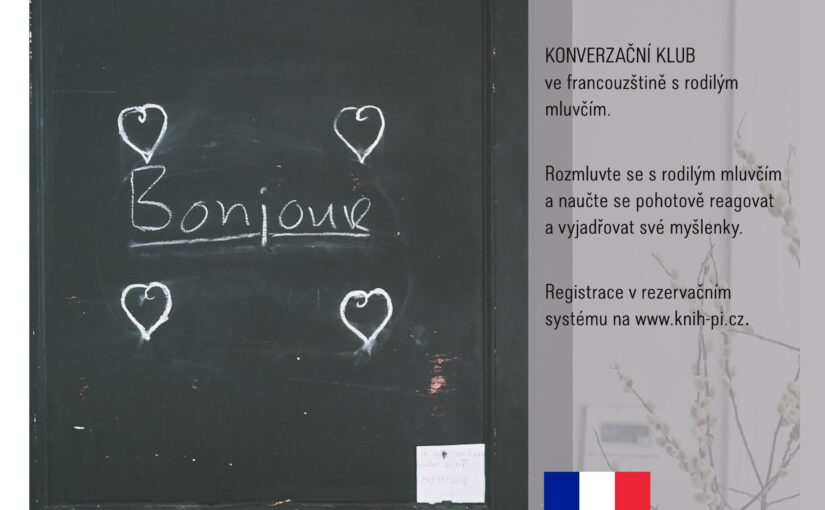 Bonjour
KONVERZAČNÍ KLUB
ve francouzštině s rodilým
mluvčím.
Rozmluvte se s rodilým mluvčím
a naučte se pohotově reagovat
a vyjadřovat své myšlenky.
Registrace v rezervačním
systému na www.knih-pi.cz.